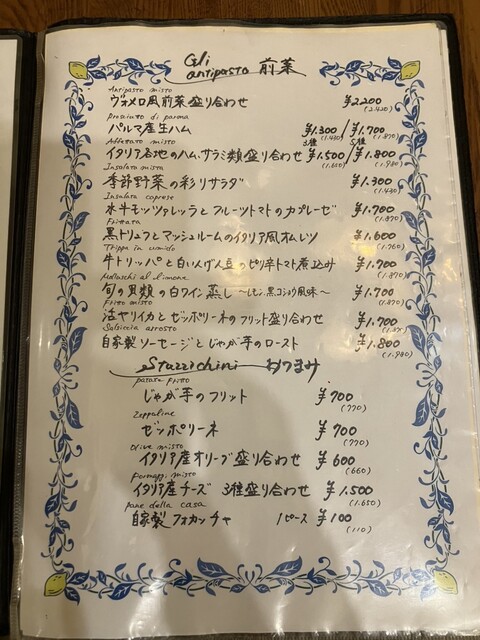 Gli
antipasto 前菜
Antipasto misto
ヴォメロ風前菜盛り合わせ ¥2,200
(2,420)
Prosciutto di parma
パルマ産生ハム ¥1,300 / ¥1,700
(1,430) (1,870)
Affettato misto 3種 5種
イタリア各地のハム、サラミ類盛り合わせ ¥1,500 / ¥1,800
(1,650) (1,980)
Insalata mista
季節野菜の彩りサラダ ¥1,300
(1,430)
Insalata caprese
水牛モッツァレッラとフルーツトマトのカプレーゼ ¥1,700
(1,870)
Frittata
黒トリュフとマッシュルームのイタリア風オムレツ ¥1,600
(1,760)
Trippa in umido
牛トリッパと白いんげん豆のピリ辛トマト煮込み ¥1,700
(1,870)
Molluschi al limone
旬の貝類の白ワイン蒸し 〜レモン、黒コショウ風味〜 ¥1,700
(1,870)
Fritto misto
活ヤリイカとゼッポリーネのフリット盛り合わせ ¥1,700
(1,870)
Salsiccia arrosto
自家製ソーセージとじゃが芋のロースト ¥1,800
(1,980)
Stuzzichini おつまみ
patate fritto
じゃが芋のフリット ¥700
(770)
Zeppoline
ゼッポリーネ ¥700
(770)
Olive misto
イタリア産オリーブ盛り合わせ ¥600
(660)
Formaggi misto
イタリア産チーズ 3種盛り合わせ ¥1,500
(1,650)
pane della casa
自家製フォカッチャ 1ピース ¥100
(110)